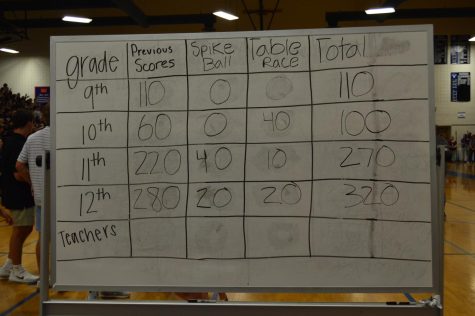 grade Previous Scores Spike Ball Table Race Total
9th 110 0 0 110
10th 60 0 40 100
11th 220 40 10 270
12th 280 20 20 320
Teachers